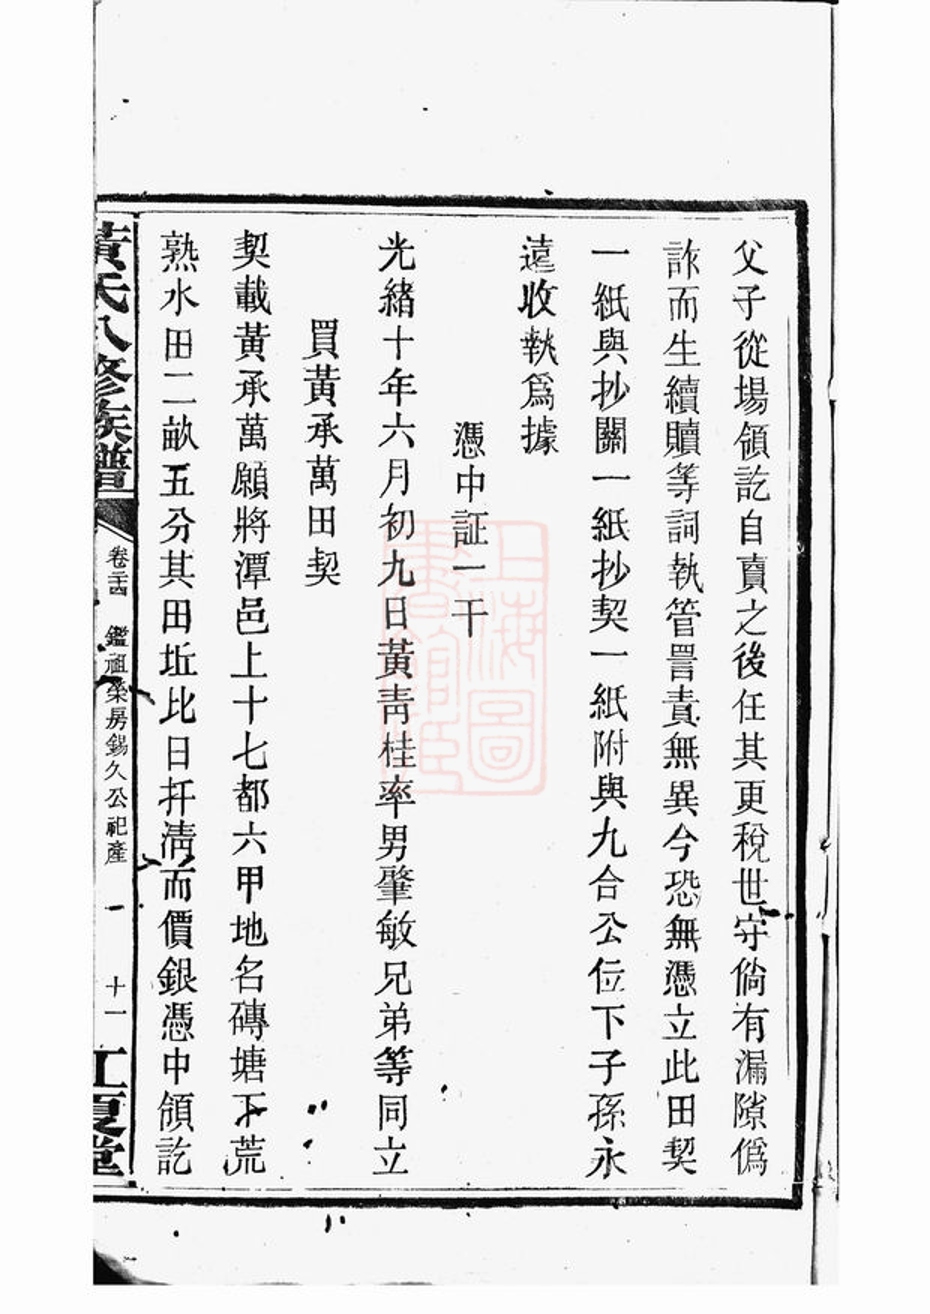 父子從場領訖自賣之後任其更稅世守倘有漏隙僞
詐而生續贖等詞執管詈責無異今恐無憑立此田契
一紙與抄關一紙抄契一紙附與九合公位下子孫永
遠收執爲據
憑中証一干
光緒十年六月初九日黃靑桂率男肇敏兄弟等同立
買黃承萬田契
契載黃承萬願將潭邑上十七都六甲地名磚塘下荒
熟水田二畝五分其田坵比日扞淸而價銀憑中領訖
黃氏八修族譜
卷二十四 鑑祖榮房錫久公祀產 十一
江夏堂
上海圖書館藏